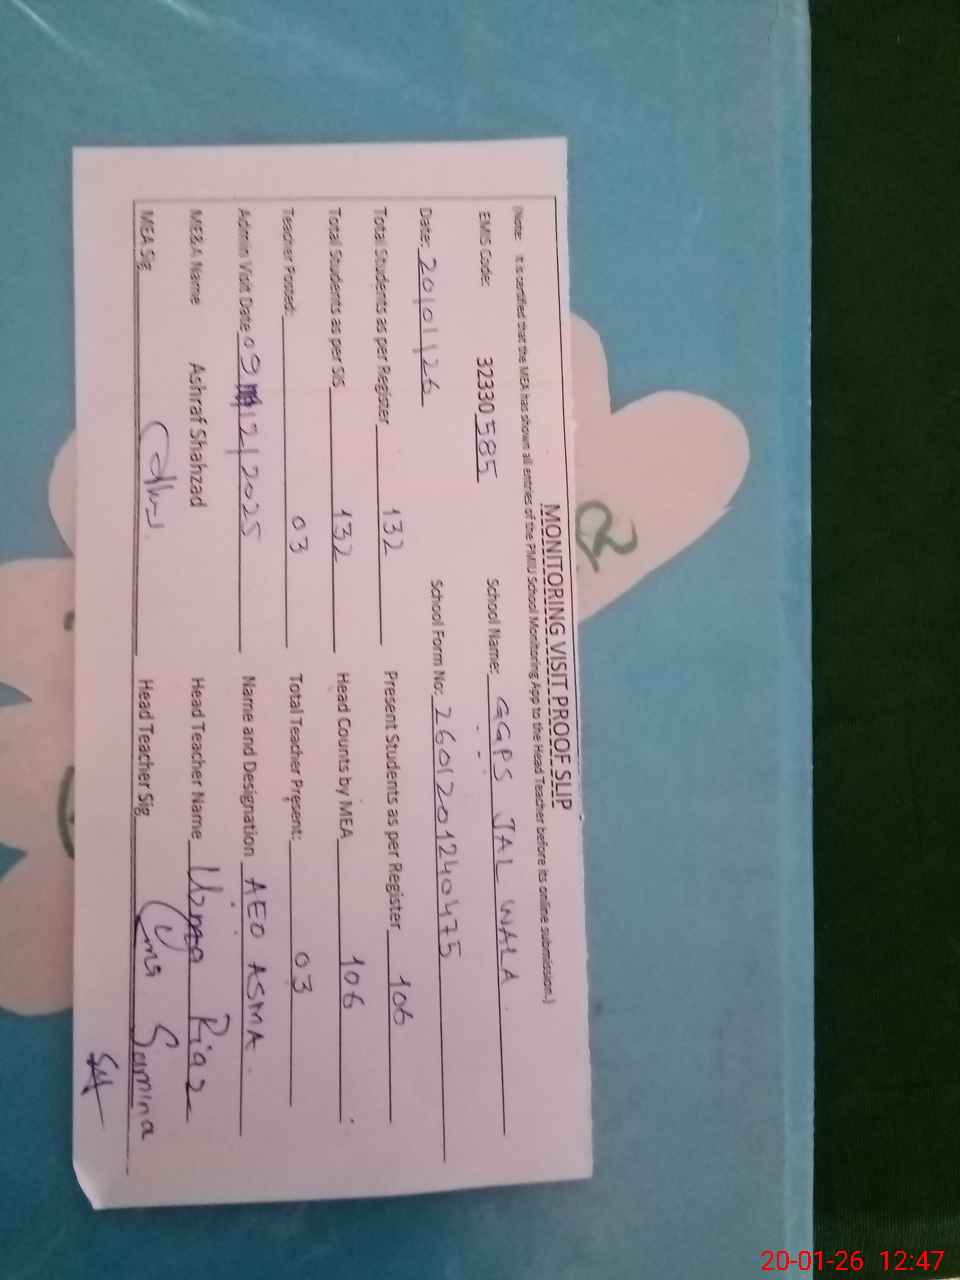 MONITORING VISIT PROOF SLIP
(Note: It is certified that the MEA has shown all entries of the PMIU School Monitoring App to the Head Teacher before its online submission.)
EMIS Code: 32330585 School Name: GGPS JAL WALA
Date: 20/01/26 School Form No: 2601201240475
Total Students as per Register 132 Present Students as per Register 106
Total Students as per SIS 132 Head Counts by MEA 106
Teacher Posted: 03 Total Teacher Present: 03
Admin Visit Date 09 12/2025 Name and Designation AEO ASMA
ME&A Name Ashraf Shahzad Head Teacher Name Uzma Riaz
MEA Sig Head Teacher Sig Samina
20-01-26 12:47